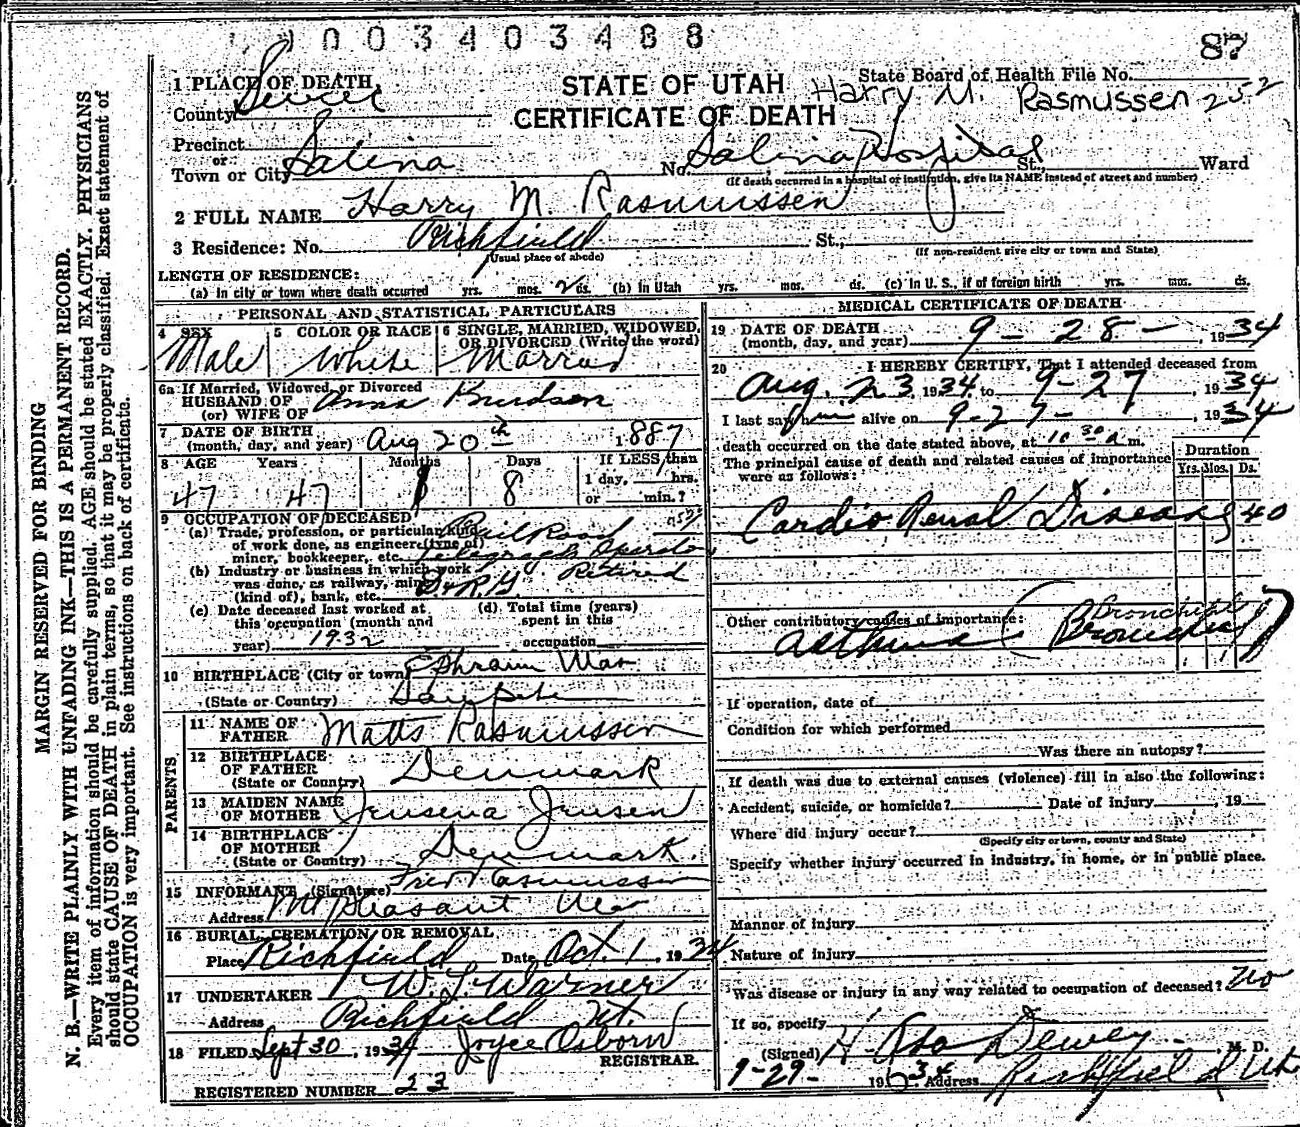 1003403488
87
1 PLACE OF DEATH
County Sevier
Precinct
or
Town or City Salina
STATE OF UTAH
CERTIFICATE OF DEATH
State Board of Health File No.
Harry M. Rasmussen 252
No. Salina Hospital St., Ward
(If death occurred in a hospital or institution, give its NAME instead of street and number)
2 FULL NAME Harry M. Rasmussen
3 Residence: No. Richfield St.,
(Usual place of abode) (If non-resident give city or town and State)
LENGTH OF RESIDENCE:
(a) In city or town where death occurred yrs. mos. 2 ds. (b) in Utah yrs. mos. ds. (c) in U. S., if of foreign birth yrs. mos. ds.
PERSONAL AND STATISTICAL PARTICULARS
4 SEX Male
5 COLOR OR RACE White
6 SINGLE, MARRIED, WIDOWED, OR DIVORCED (Write the word) Married
6a If Married, Widowed, or Divorced
HUSBAND OF Anna Knudson
(or) WIFE OF
7 DATE OF BIRTH
(month, day, and year) Aug 20th 1887
8 AGE Years Months Days If LESS than
47 47 1 8 1 day, hrs.
or min.?
9 OCCUPATION OF DECEASED
(a) Trade, profession, or particular kind Rail Road
of work done, as engineer (type of)
miner, bookkeeper, etc. telegraph Operator
(b) Industry or business in which work Retired
was done, as railway, mine
(kind of), bank, etc. D & R G
(c) Date deceased last worked at (d) Total time (years)
this occupation (month and spent in this
year) 1932 occupation
10 BIRTHPLACE (City or town) Ephraim Utah
(State or Country) Sanpete
PARENTS
11 NAME OF FATHER Matts Rasmussen
12 BIRTHPLACE OF FATHER
(State or Country) Denmark
13 MAIDEN NAME OF MOTHER Jensena Jensen
14 BIRTHPLACE OF MOTHER
(State or Country) Denmark.
15 INFORMANT (Signature) Fred Rasmussen
Address Mt Pleasant Utah
16 BURIAL, CREMATION, OR REMOVAL
Place Richfield Date Oct. 1, 1934
17 UNDERTAKER W. L. Warner
Address Richfield Ut.
18 FILED Sept 30, 1934 Joyce Osborn
REGISTRAR.
REGISTERED NUMBER 23
MEDICAL CERTIFICATE OF DEATH
19 DATE OF DEATH
(month, day, and year) 9 - 28 - , 1934
20 I HEREBY CERTIFY, That I attended deceased from
Aug. 23, 1934, to 9-27, 1934
I last saw him alive on 9-27-, 1934
death occurred on the date stated above, at 10 30 a m.
The principal cause of death and related causes of importance
were as follows:
Duration
Yrs. Mos. Ds.
Cardio Renal Disease 40
Other contributory causes of importance:
Asthma (Bronchial
Bronchial)
If operation, date of
Condition for which performed
Was there an autopsy?
If death was due to external causes (violence) fill in also the following:
Accident, suicide, or homicide? Date of injury, 19
Where did injury occur?
(Specify city or town, county and State)
Specify whether injury occurred in industry, in home, or in public place.
Manner of injury
Nature of injury
Was disease or injury in any way related to occupation of deceased? No
If so, specify
(Signed) H Asa Dewey M. D.
9-29- 1934 Address Richfield Utah
MARGIN RESERVED FOR BINDING
N. B.—WRITE PLAINLY WITH UNFADING INK—THIS IS A PERMANENT RECORD.
Every item of information should be carefully supplied. AGE should be stated EXACTLY. PHYSICIANS
should state CAUSE OF DEATH in plain terms, so that it may be properly classified. Exact statement of
OCCUPATION is very important. See instructions on back of certificate.